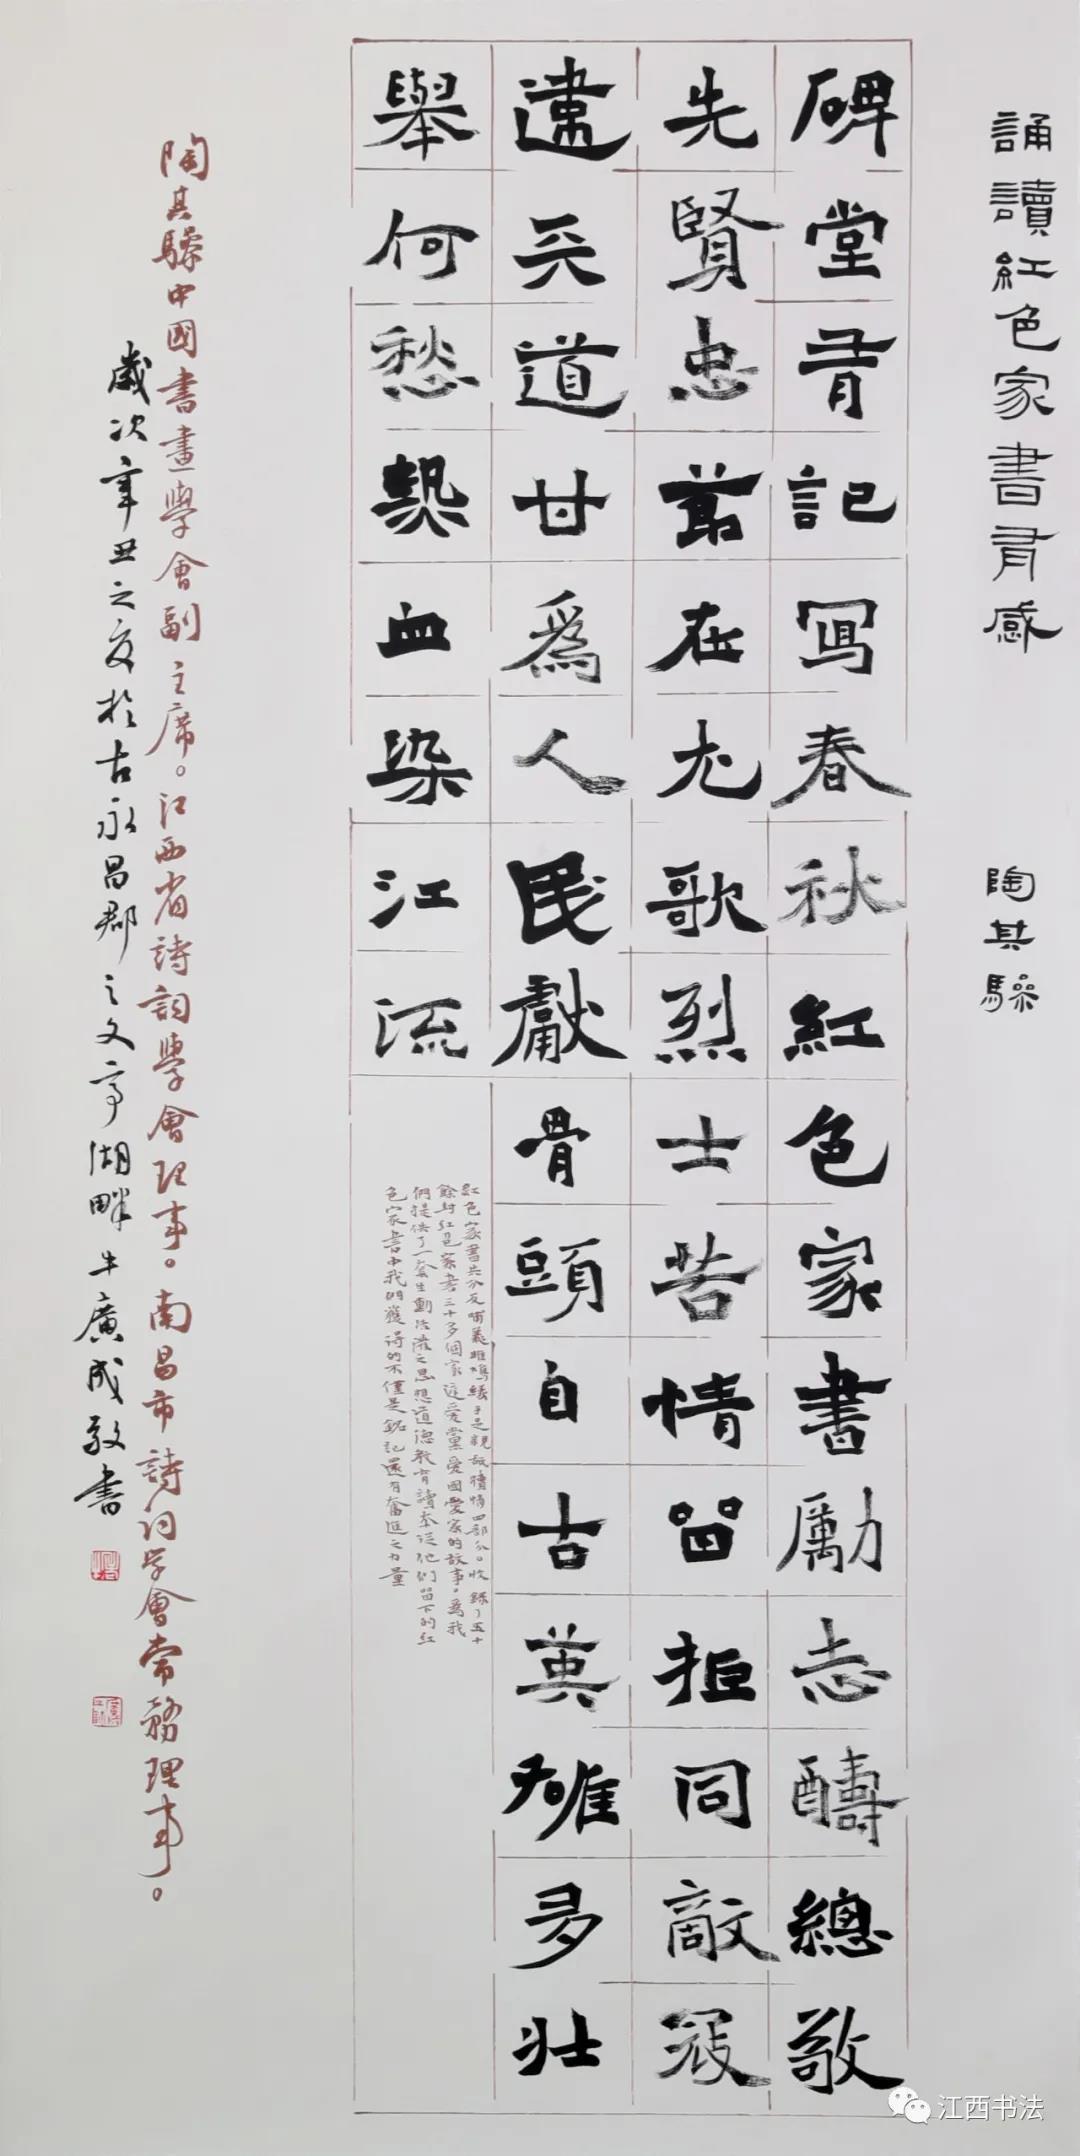 誦讀紅色家書有感 陶其
碑堂有記寫春秋紅色家書勵志醻總敬
先賢忠莭在尤歌烈士苦情留拒同敵寇
違天道甘爲人民獻骨頭自古英雄多壯
舉何愁熱血染江流
紅色家書共分反哺義雎鳩緣手足親舐犢情四部分。收錄了五十
餘封紅色家書三十多個家庭愛黨愛國愛家的故事。爲我
們提供了一套生動活潑之思想道德教育讀本從他們留下的紅
色家書中我們獲得的不僅是銘記還有奮進之力量
陶其中國書畫學會副主席。江西省詩詞學會理事。南昌市詩词学會常務理事。
歲次辛丑之夏於古永昌郡之文亭湖畔牛廣成敬書
江西书法